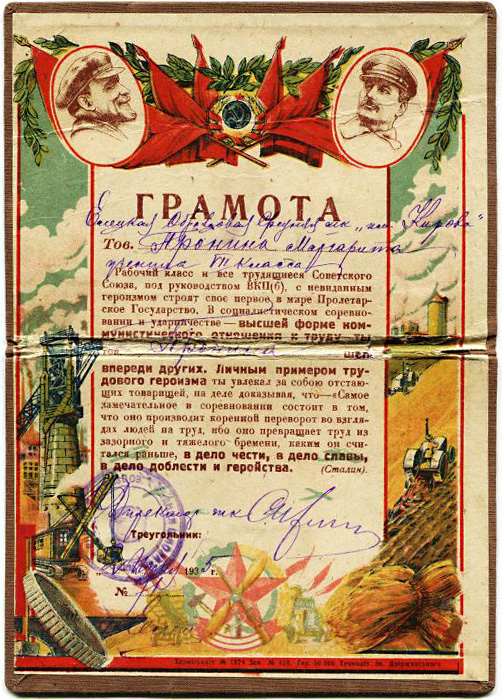 ГРАМОТА
Елецкая Образцовая Средняя шк „им. Кирова"
Тов. Пронина Маргарита
ученица VII класса
Рабочий класс и все трудящиеся Советского
Союза, под руководством ВКП(б), с невиданным
героизмом строят свое первое в мире Пролетар-
ское Государство. В социалистическом сорев-
новании и ударничестве — высшей форме ком-
мунистического отношения к труду, ты
тов. Пронина шел
впереди других. Личным примером тру-
дового героизма ты увлекал за собою отстаю-
щих товарищей, на деле доказывая, что—«Самое
замечательное в соревновании состоит в том,
что оно производит коренной переворот во взгля-
дах людей на труд, ибо оно превращает труд из
зазорного и тяжелого бремени, каким он счи-
тался раньше, в дело чести, в дело славы,
в дело доблести и геройства. (Сталин).
Директор шк
Треугольник:
193 г.
№